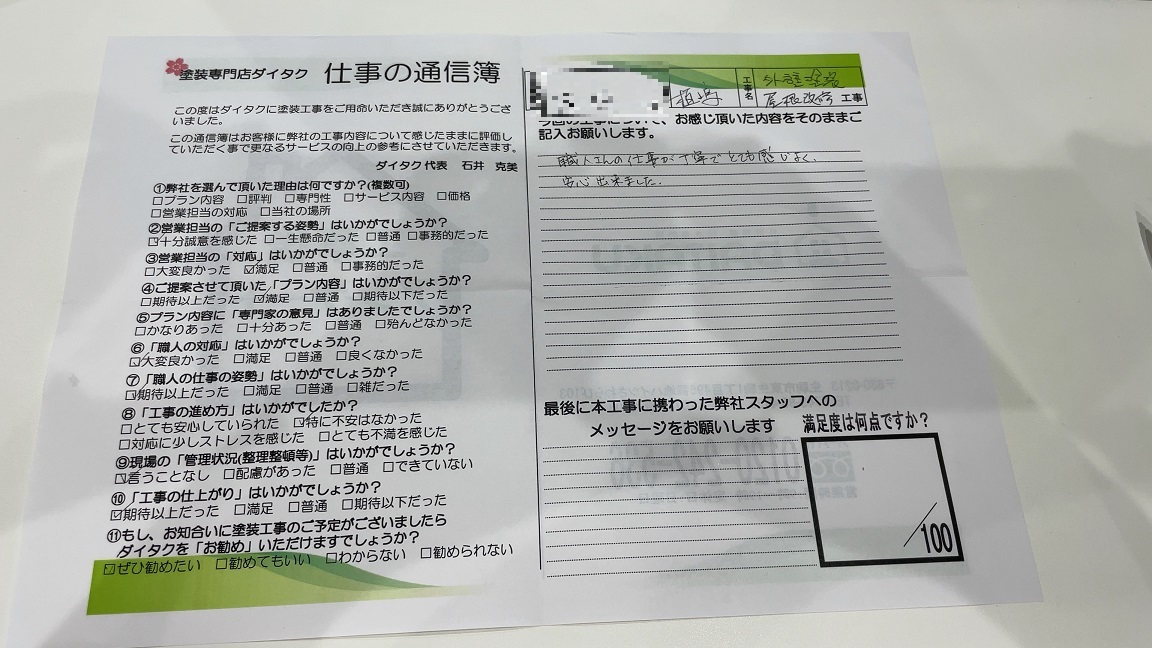 塗装専門店ダイタク 仕事の通信簿
この度はダイタクに塗装工事をご用命いただき誠にありがとうござ
いました。
この通信簿はお客様に弊社の工事内容について感じたままに評価し
ていただく事で更なるサービスの向上の参考にさせていただきます。
ダイタク代表 石井 克美
①弊社を選んで頂いた理由は何ですか?(複数可)
□プラン内容 □評判 □専門性 □サービス内容 □価格
□営業担当の対応 □当社の場所
②営業担当の「ご提案する姿勢」はいかがでしょうか?
☑十分誠意を感じた □一生懸命だった □普通 □事務的だった
③営業担当の「対応」はいかがでしょうか?
□大変良かった ☑満足 □普通 □事務的だった
④ご提案させて頂いた「プラン内容」はいかがでしょうか?
□期待以上だった ☑満足 □普通 □期待以下だった
⑤プラン内容に「専門家の意見」はありましたでしょうか?
□かなりあった □十分あった □普通 □殆んどなかった
⑥「職人の対応」はいかがでしょうか?
☑大変良かった □満足 □普通 □良くなかった
⑦「職人の仕事の姿勢」はいかがでしょうか?
☑期待以上だった □満足 □普通 □雑だった
⑧「工事の進め方」はいかがでしたか?
□とても安心していられた ☑特に不安はなかった
□対応に少しストレスを感じた □とても不満を感じた
⑨現場の「管理状況(整理整頓等)」はいかがでしょうか?
☑言うことなし □配慮があった □普通 □できていない
⑩「工事の仕上がり」はいかがでしょうか?
☑期待以上だった □満足 □普通 □期待以下だった
⑪もし、お知合いに塗装工事のご予定がございましたら
ダイタクを「お勧め」いただけますでしょうか?
☑ぜひ勧めたい □勧めてもいい □わからない □勧められない
工事名 外壁塗装
屋根改修 工事
今回の工事について、お感じ頂いた内容をそのままご
記入お願いします。
職人さんの仕事が丁寧でとても感じよく、
安心出来ました。
最後に本工事に携わった弊社スタッフへの
メッセージをお願いします
満足度は何点ですか?
/100